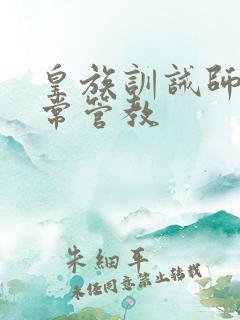 皇族訓誡師
常管教
朱細平
未经同意禁止转载